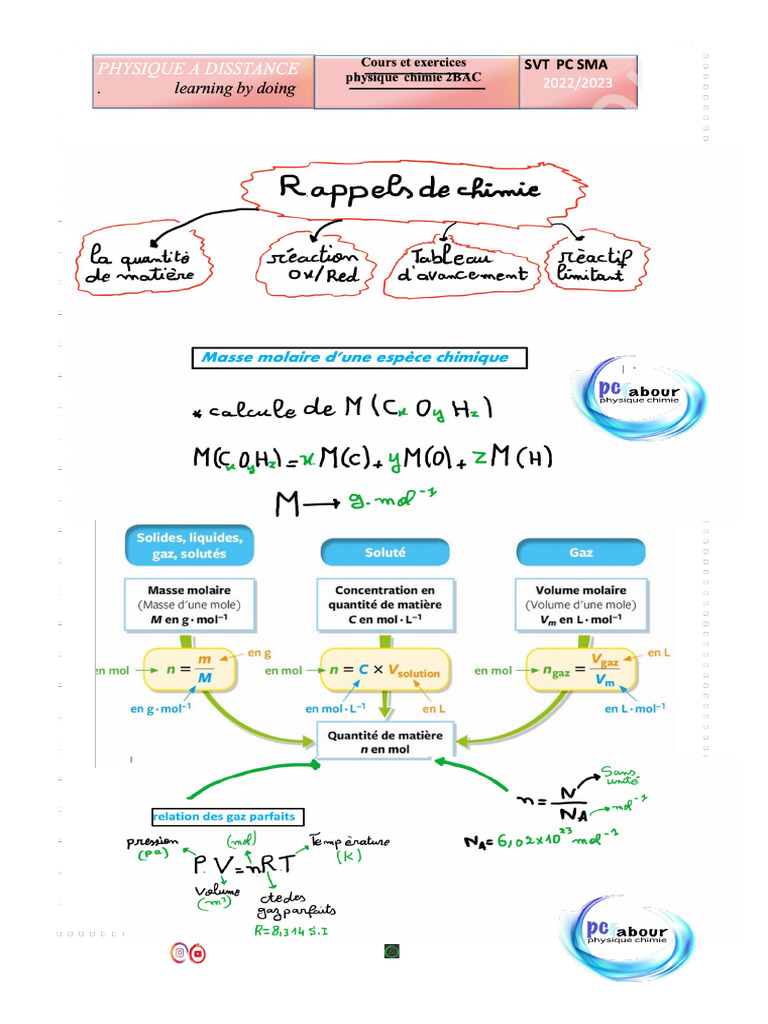 PHYSIQUE A DISSTANCE
. learning by doing
Cours et exercices
physique chimie 2BAC
SVT PC SMA
2022/2023
Rappels de chimie
la quantité
de matière
réaction
Ox/Red
Tableau
d'avancement
rèactif
limitant
Masse molaire d'une espèce chimique
pcfabour
physique chimie
* calcule de M(CxOyHz)
M(CxOyHz)=xM(C)+yM(O)+zM(H)
M → g.mol⁻¹
Solides, liquides,
gaz, solutés
Soluté
Gaz
Masse molaire
(Masse d'une mole)
M en g·mol⁻¹
Concentration en
quantité de matière
C en mol·L⁻¹
Volume molaire
(Volume d'une mole)
Vm en L·mol⁻¹
en mol
n = m/M
en g
en g·mol⁻¹
en mol
n = C × Vsolution
en mol·L⁻¹
en L
en mol
ngaz = Vgaz/Vm
en L
en L·mol⁻¹
Quantité de matière
n en mol
relation des gaz parfaits
pression
(Pa)
(mol)
Température
(K)
P.V=nR.T
Volume
(m³)
cte des
gaz parfaits
R=8,314 S.I
n = N/NA
Sans
unité
mol⁻¹
NA=6,02x10²³ mol⁻¹
pcfabour
physique chimie